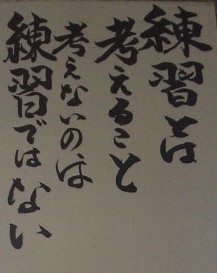 練習とは
考えること
考えないのは
練習ではない